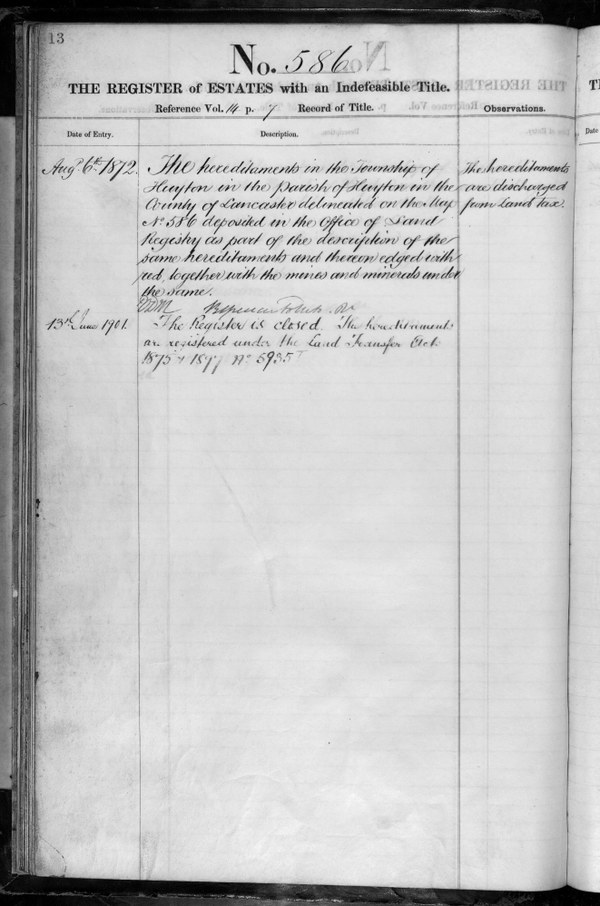 13
No. 586
THE REGISTER of ESTATES with an Indefeasible Title.
Reference Vol. 14 p. 7 Record of Title.
Observations.
Date of Entry.
Description.
Augt. 6th 1872.
The hereditaments in the Township of
Huyton in the parish of Huyton in the
County of Lancaster delineated on the Map
No 586 deposited in the Office of Land
Registry as part of the description of the
same hereditaments and thereon edged with
red, together with the mines and minerals under
the same.
The hereditaments
are discharged
from land tax.
13th June 1901.
The Register is closed. The hereditaments
are registered under the Land Transfer Acts
1875 & 1897 No 5935